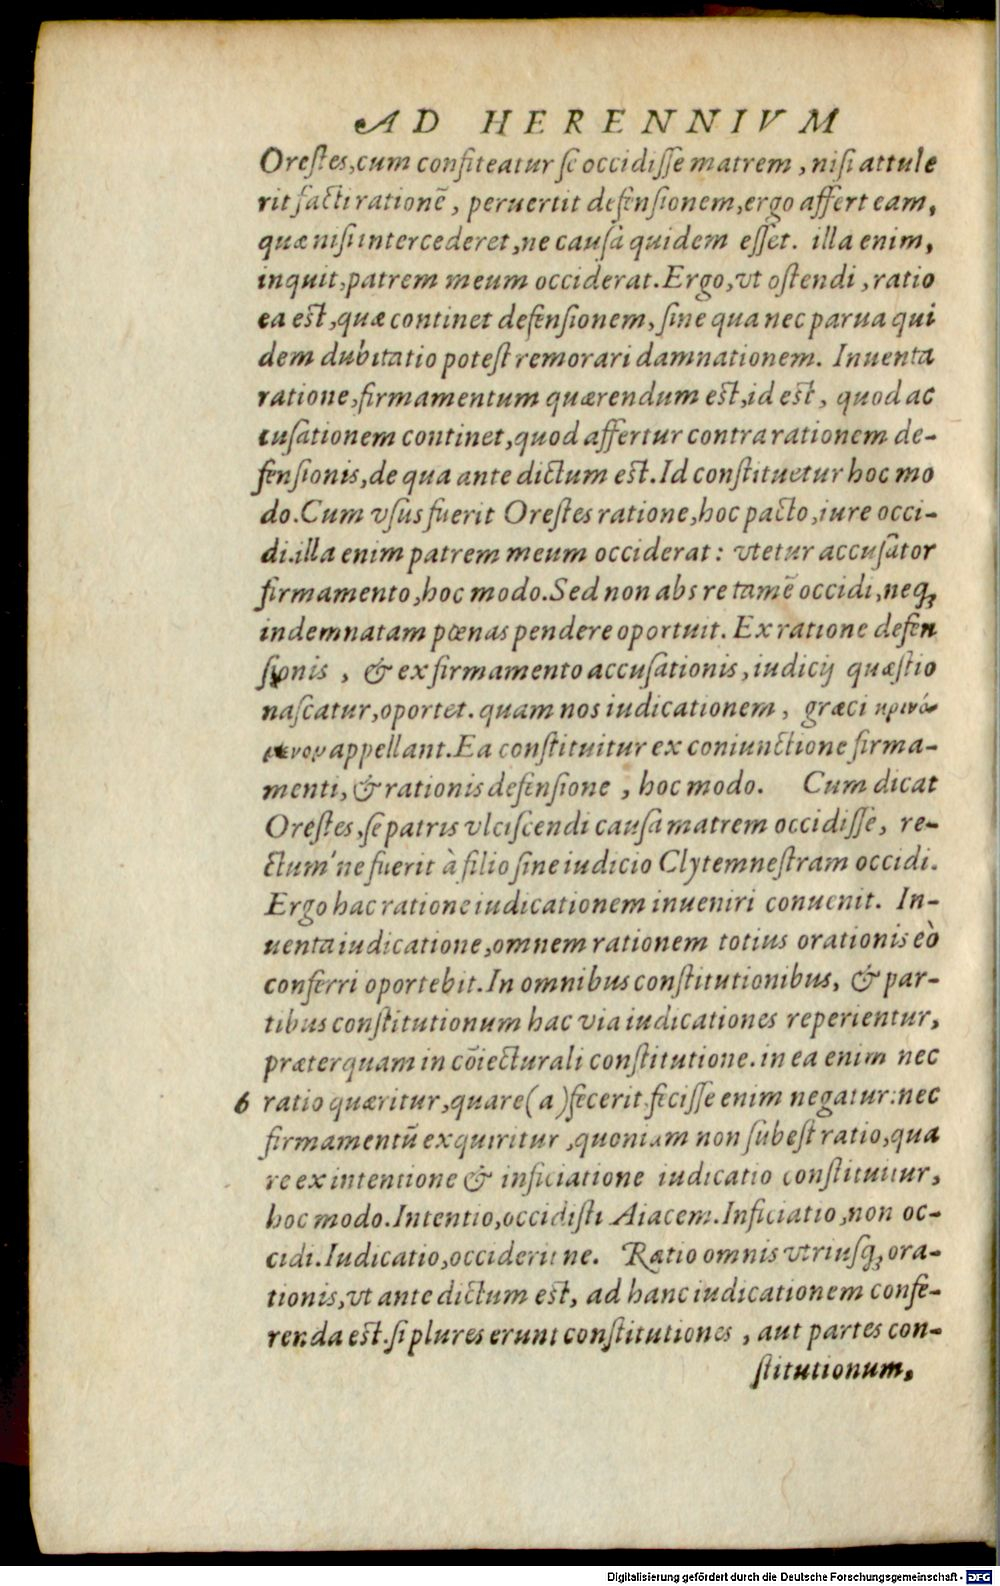 AD HERENNIVM
Orestes,cum confiteatur se occidisse matrem, nisi attule
rit facti rationẽ, peruertit defensionem,ergo affert eam,
quæ nisi intercederet,ne causa quidem esset. illa enim,
inquit,patrem meum occiderat.Ergo,vt ostendi, ratio
ea est,quæ continet defensionem, sine qua nec parua qui
dem dubitatio potest remorari damnationem. Inuenta
ratione,firmamentum quærendum est,id est, quod ac
cusationem continet,quod affertur contra rationem de-
fensionis,de qua ante dictum est.Id constituetur hoc mo
do.Cum vsus fuerit Orestes ratione,hoc pacto,iure occi-
di.illa enim patrem meum occiderat: vtetur accusator
firmamento,hoc modo.Sed non abs re tamẽ occidi,neq;
indemnatam pœnas pendere oportuit. Ex ratione defen
sionis, & ex firmamento accusationis, iudicij quæstio
nascatur,oportet. quam nos iudicationem, græci κρινό-
μενον appellant.Ea constituitur ex coniunctione firma-
menti,& rationis defensione, hoc modo. Cum dicat
Orestes,se patris vlciscendi causa matrem occidisse, re-
ctum'ne fuerit à filio sine iudicio Clytemnestram occidi.
Ergo hac ratione iudicationem inueniri conuenit. In-
uenta iudicatione,omnem rationem totius orationis eò
conferri oportebit.In omnibus constitutionibus, & par-
tibus constitutionum hac via iudicationes reperientur,
præterquam in cõiecturali constitutione.in ea enim nec
6 ratio quæritur,quare(a)fecerit.fecisse enim negatur:nec
firmamentũ exquiritur,quoniam non subest ratio,qua
re ex intentione & inficiatione iudicatio constituitur,
hoc modo.Intentio,occidisti Aiacem.Inficiatio,non oc-
cidi.Iudicatio,occiderit ne. Ratio omnis vtriusq; ora-
tionis,vt ante dictum est, ad hanc iudicationem confe-
renda est.si plures erunt constitutiones, aut partes con-
stitutionum,
Digitalisierung gefördert durch die Deutsche Forschungsgemeinschaft - DFG